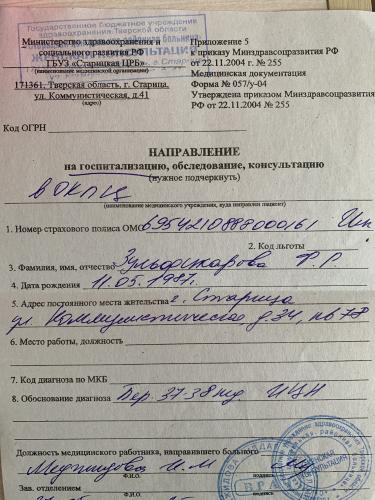 Государственное бюджетное учреждение
здравоохранения Тверской области
Министерство здравоохранения и
социального развития РФ
ГБУЗ «Старицкая ЦРБ»
(наименование медицинской организации)
171361, Тверская область, г. Старица,
ул. Коммунистическая, д.41
(адрес)
Приложение 5
к приказу Минздравсоцразвития РФ
от 22.11.2004 г. № 255
Медицинская документация
Форма № 057/у-04
Утверждена приказом Минздравсоцразвития
РФ от 22.11.2004 № 255
Код ОГРН
НАПРАВЛЕНИЕ
на госпитализацию, обследование, консультацию
(нужное подчеркнуть)
в ОКПЦ
(наименование медицинского учреждения, куда направлен пациент)
1. Номер страхового полиса ОМС 6954210888000161
2. Код льготы
3. Фамилия, имя, отчество Зульфикарова Ф. Г
4. Дата рождения 11.05.1987г.
5. Адрес постоянного места жительства г. Старица
ул. Коммунистическая д.34, кв 78
6. Место работы, должность
7. Код диагноза по МКБ
8. Обоснование диагноза Бер. 37-38 нед. ИЦН
Должность медицинского работника, направившего больного
И. М
Ф.И.О.
Зав. отделением